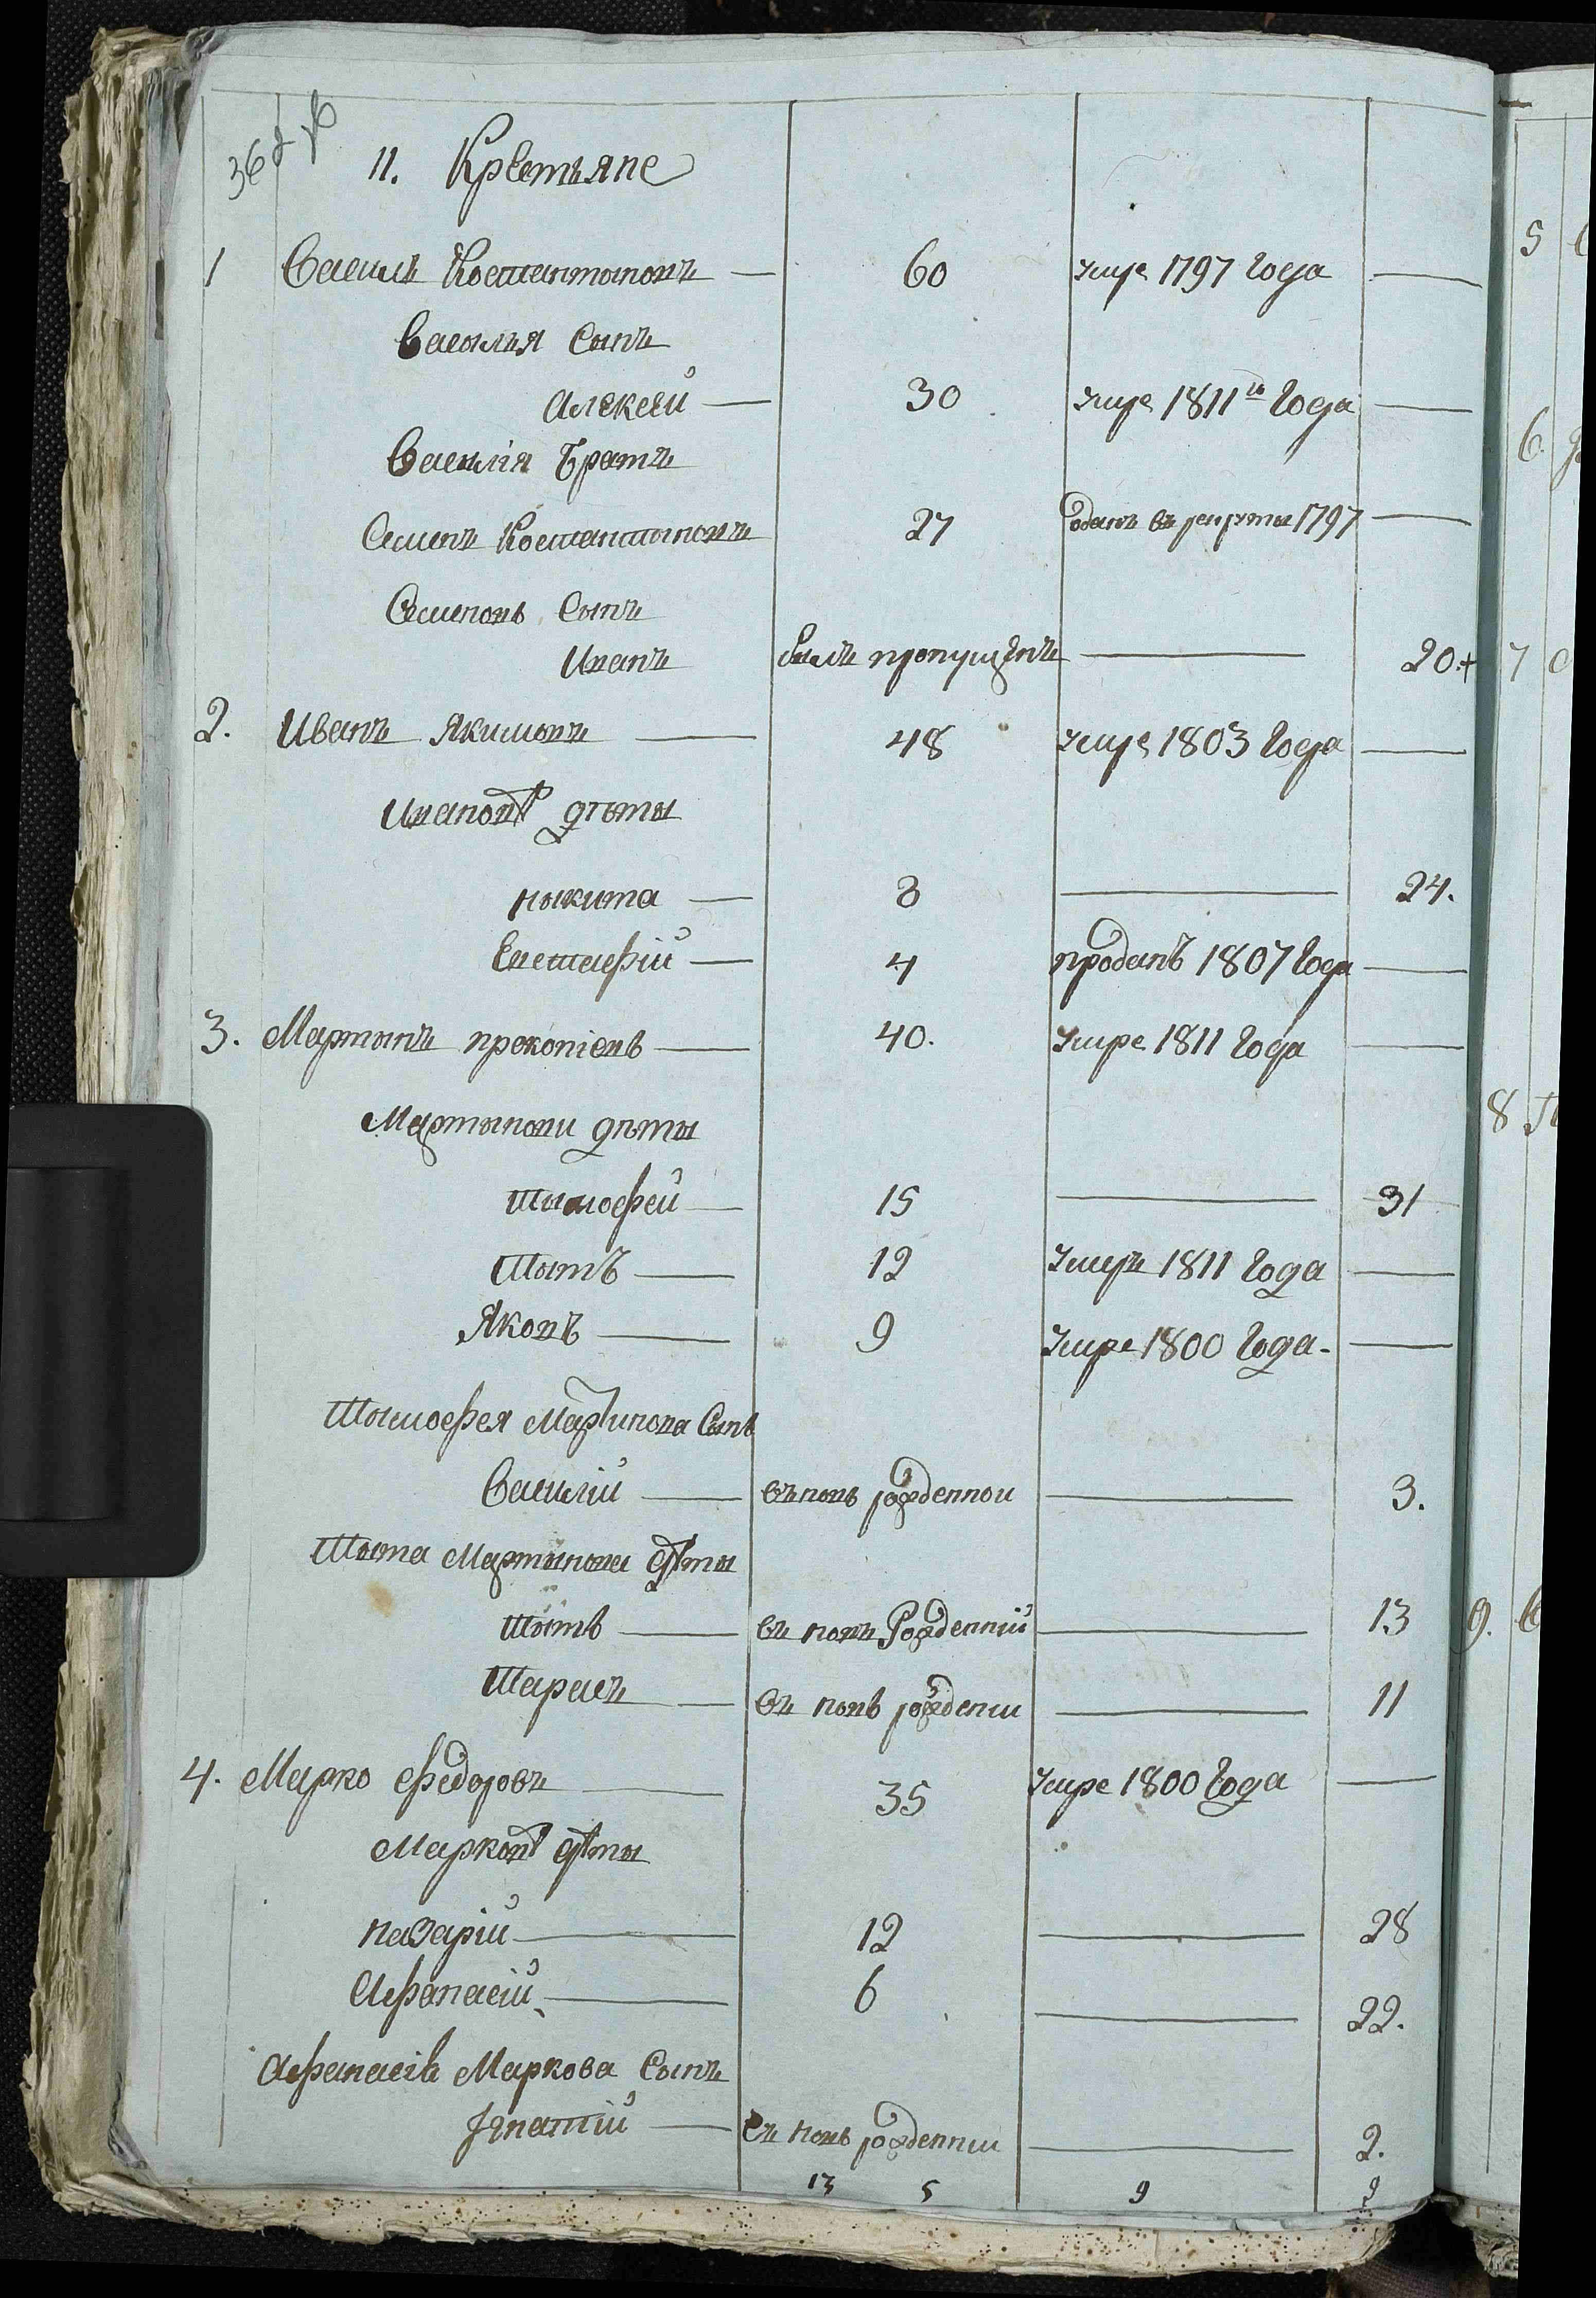 11. Крестьяне
1 Василь Костантиновъ — 60 умре 1797 года —
Василья Сынъ
Алексей — 30 умре 1811го года —
Василія Братъ
Семенъ Костантыновъ 27 oданъ въ рекруты 1797 —
Семеновъ Сынъ
Иванъ былъ пропущенъ — 20.+
2. Иванъ Якимовъ — 48 умре 1803 года —
Ивановы дѣты
ныкита — 8 — 24.
Евстафій — 4 проданъ 1807 года —
3. Мартынъ прокопіевъ — 40. умре 1811 года —
Мартынови дѣты
тымофей — 15 — 31
Тытъ — 12 умеръ 1811 года —
Яковъ — 9 умре 1800 года. —
Тымофея Мартинова Сынъ
Василій — въновь рожденной — 3.
Тыта Мартынова дѣты
тытъ — въ новъ Рожденній — 13
Тарасъ — въ новь рождени — 11
4. Марко Федоровъ — 35 умре 1800 года —
Марковы дѣты
назарій — 12 — 28
Афанасій — 6 — 22.
Афанасія Маркова Сынъ
Игнатій — въ новь рожденни — 2.
13 5 9 9
5
6.
7
8
9.